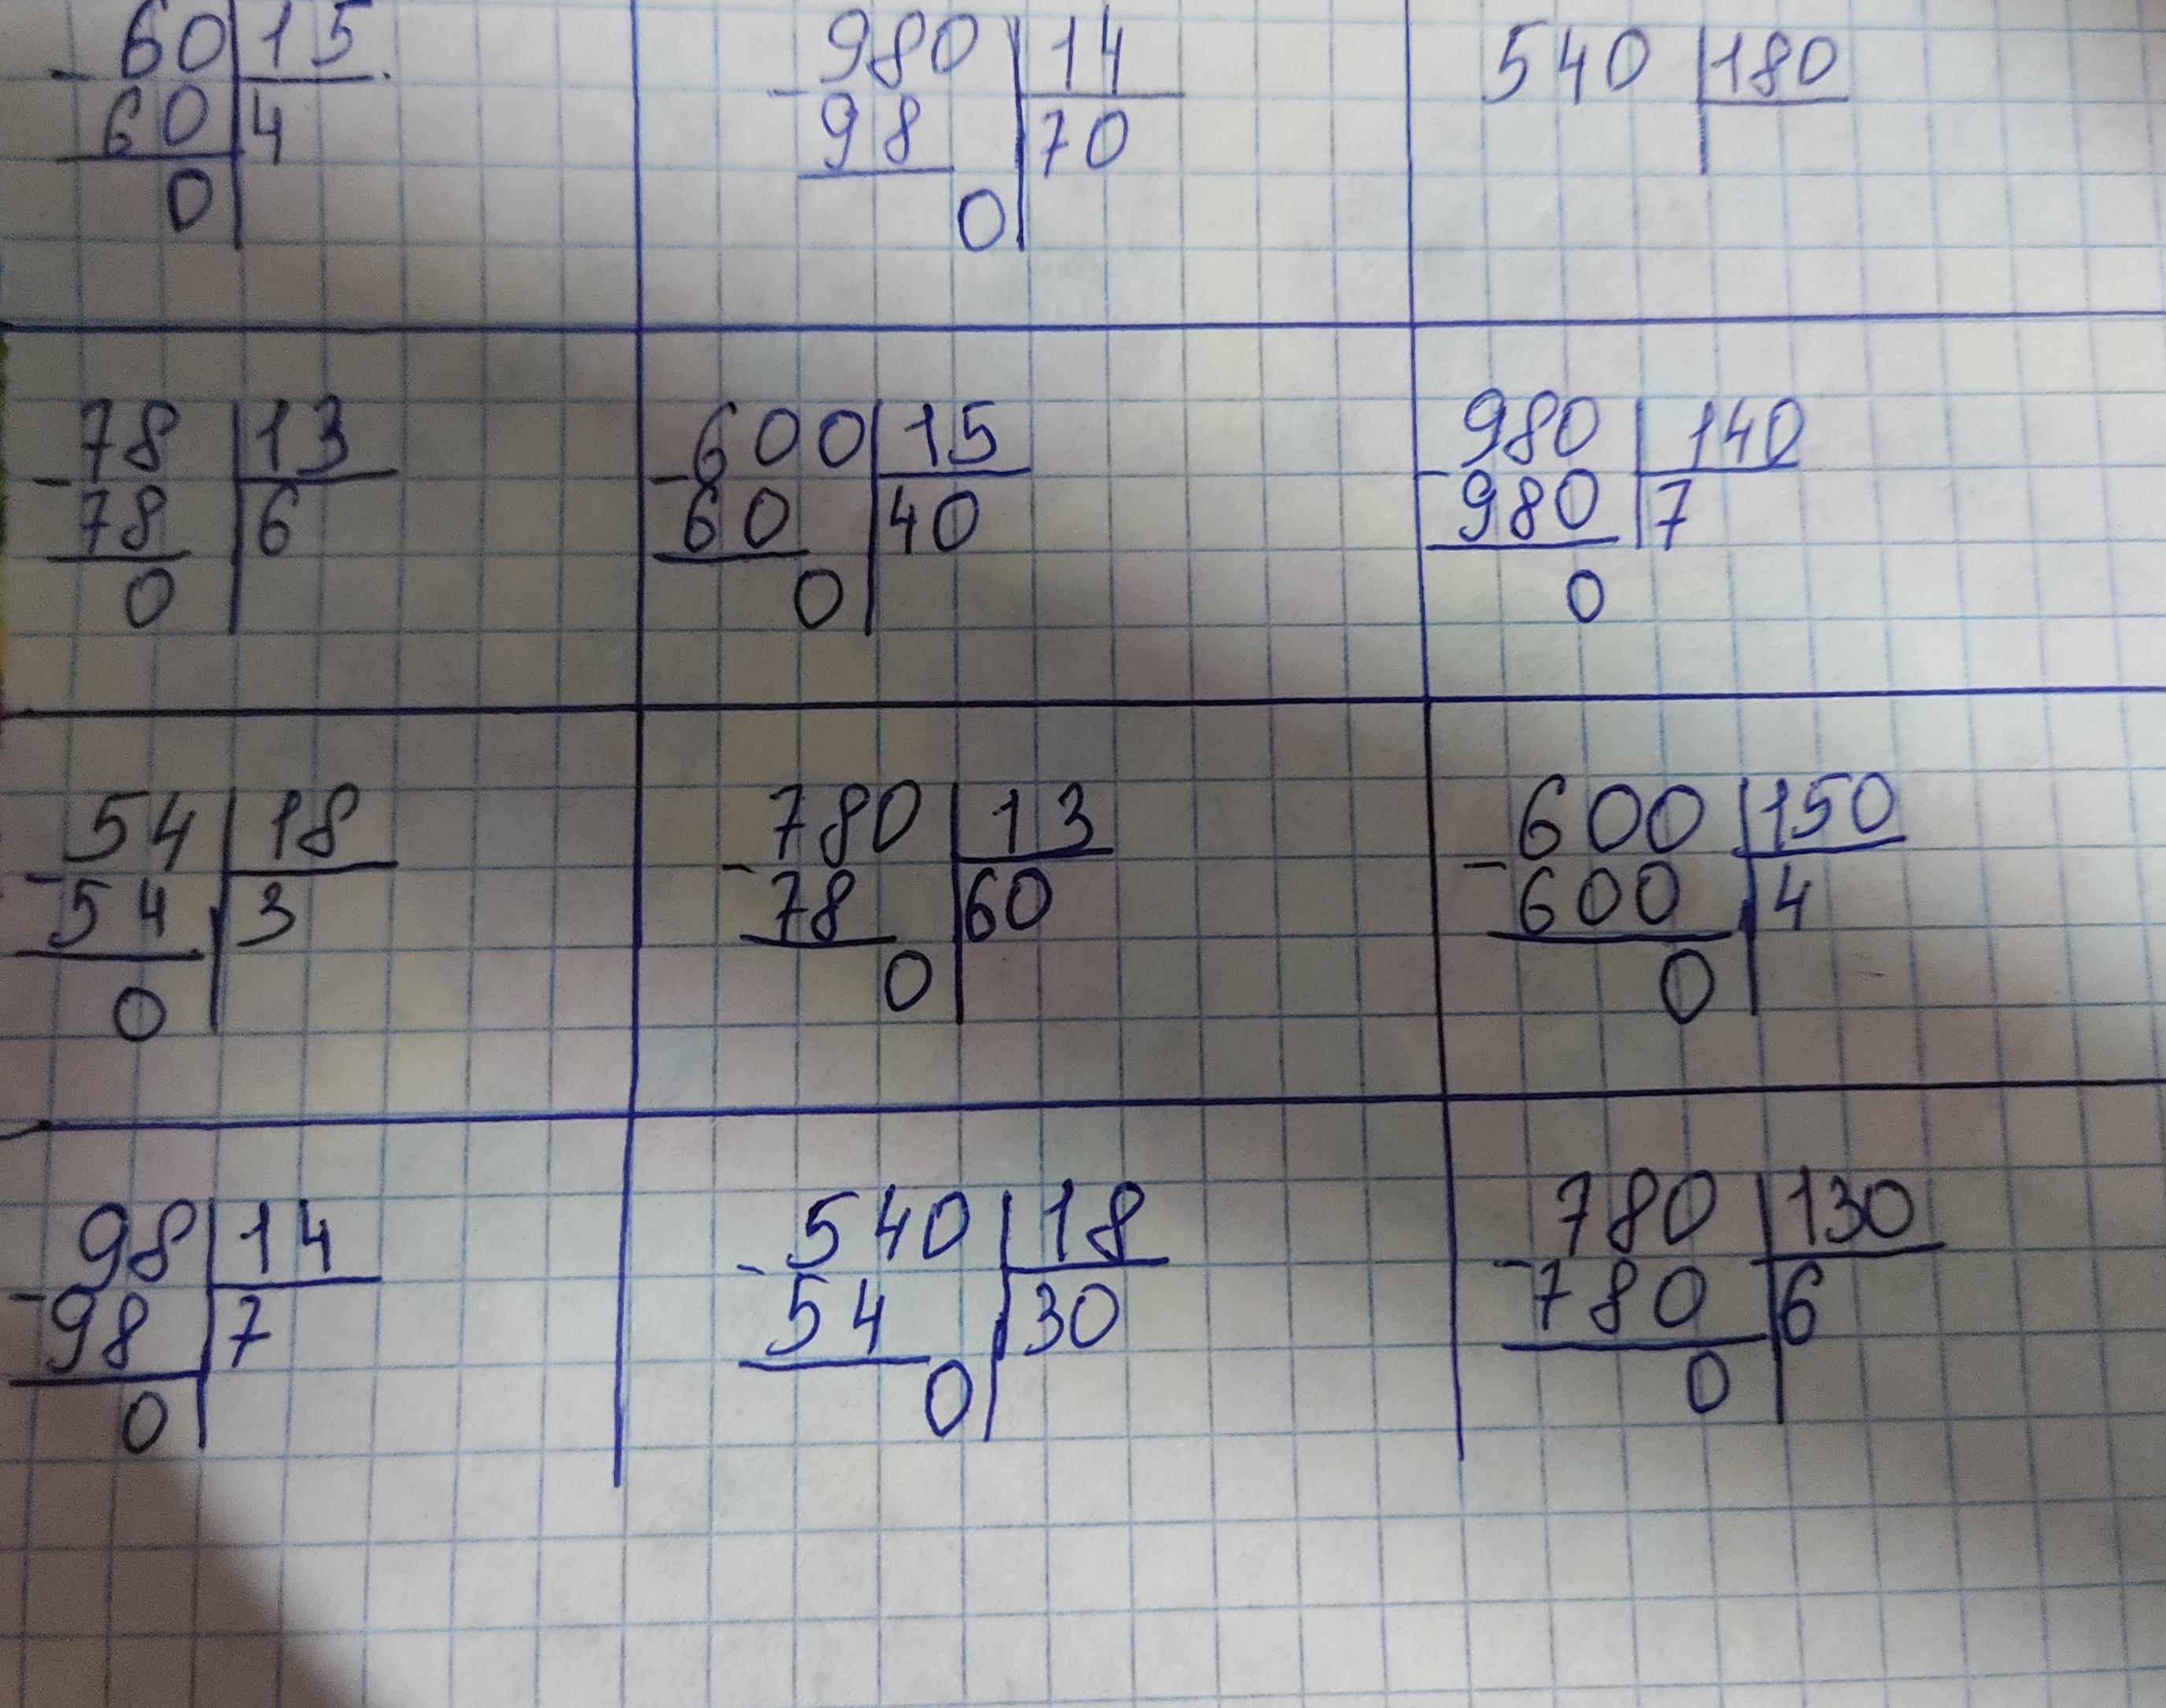 - 60 15
60 4
0
- 980 14
98 70
0
540 180
- 78 13
78 6
0
- 600 15
60 40
0
- 980 140
980 7
0
- 54 18
54 3
0
- 780 13
78 60
0
- 600 150
600 4
0
- 98 14
98 7
0
- 540 18
54 30
0
- 780 130
780 6
0